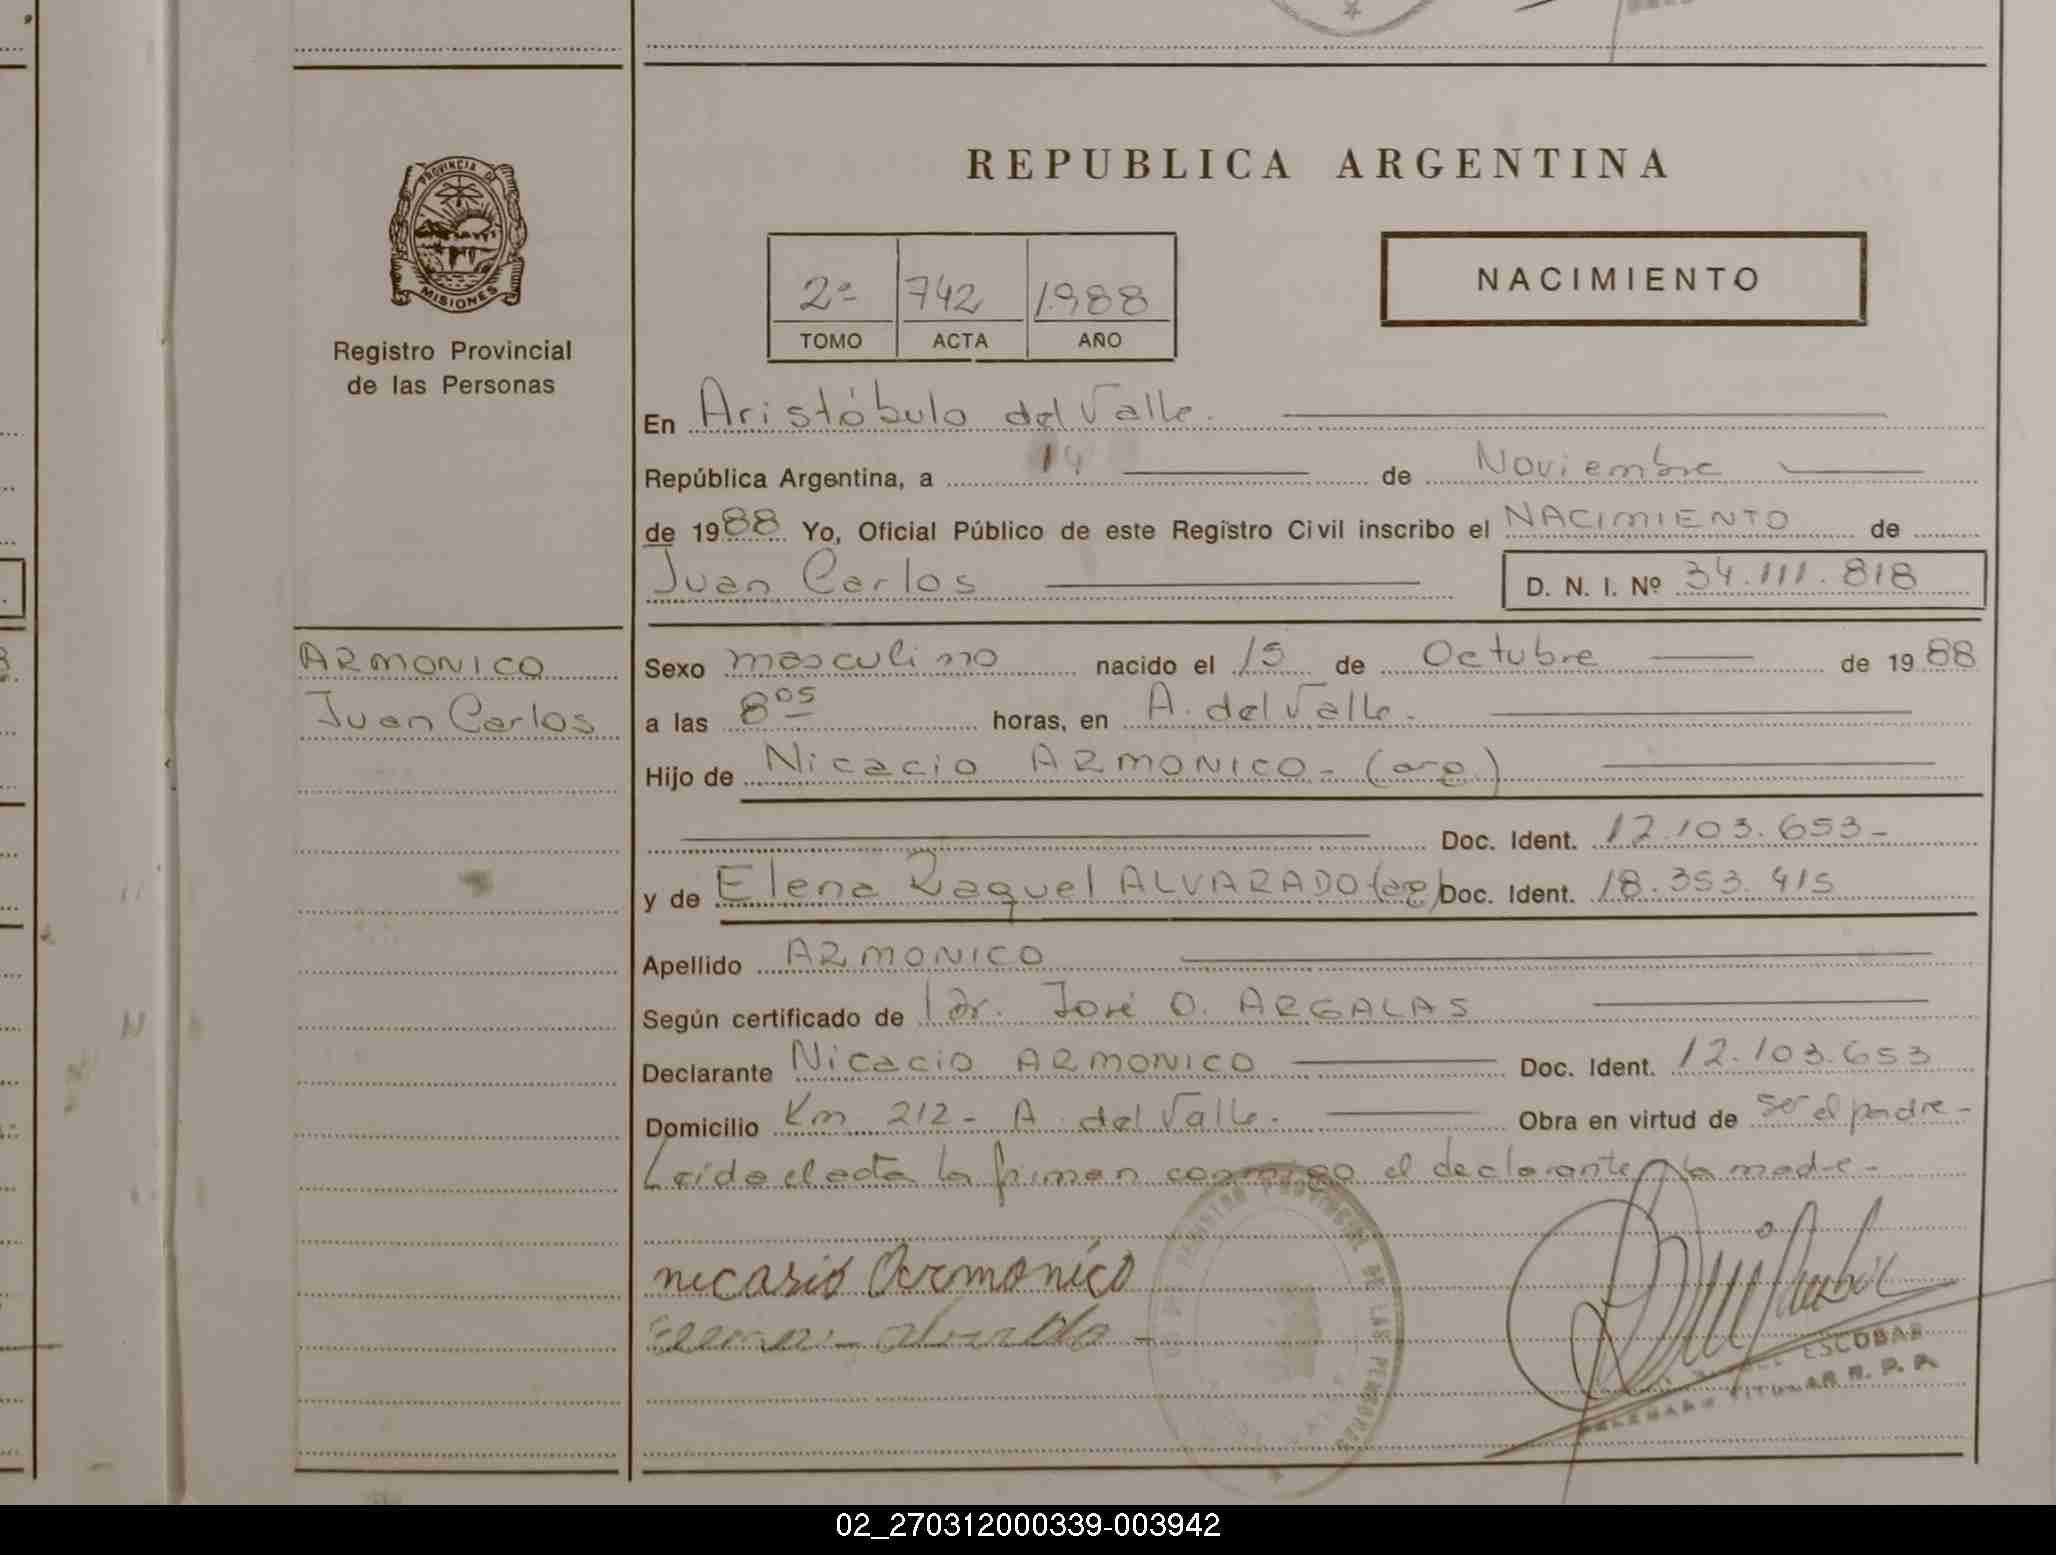 PROVINCIA DE
MISIONES
Registro Provincial
de las Personas
REPUBLICA ARGENTINA
2ª 742 1988
TOMO ACTA AÑO
NACIMIENTO
En Aristóbulo del Valle.
República Argentina, a 14 de Noviembre
de 1988 Yo, Oficial Público de este Registro Civil inscribo el NACIMIENTO de
Juan Carlos D. N. I. Nº 34.111.818
ARMONICO
Juan Carlos
Sexo masculino nacido el 15 de Octubre de 1988
a las 8 05 horas, en A. del Valle.
Hijo de Nicacio ARMONICO - (arg.)
Doc. Ident. 12.103.653-
y de Elena Raquel ALVARADO (arg) Doc. Ident. 18.353.415
Apellido ARMONICO
Según certificado de Dr. José O. ARGALAS
Declarante Nicacio ARMONICO Doc. Ident. 12.103.653
Domicilio Km 212 - A. del Valle. Obra en virtud de ser el padre -
Leída el acta la firman conmigo el declarante y la madre -
necasio Armoníco
REGISTRO PROVINCIAL DE LAS PERSONAS
ESCOBAR
TITULAR R. P. P.
02_270312000339-003942